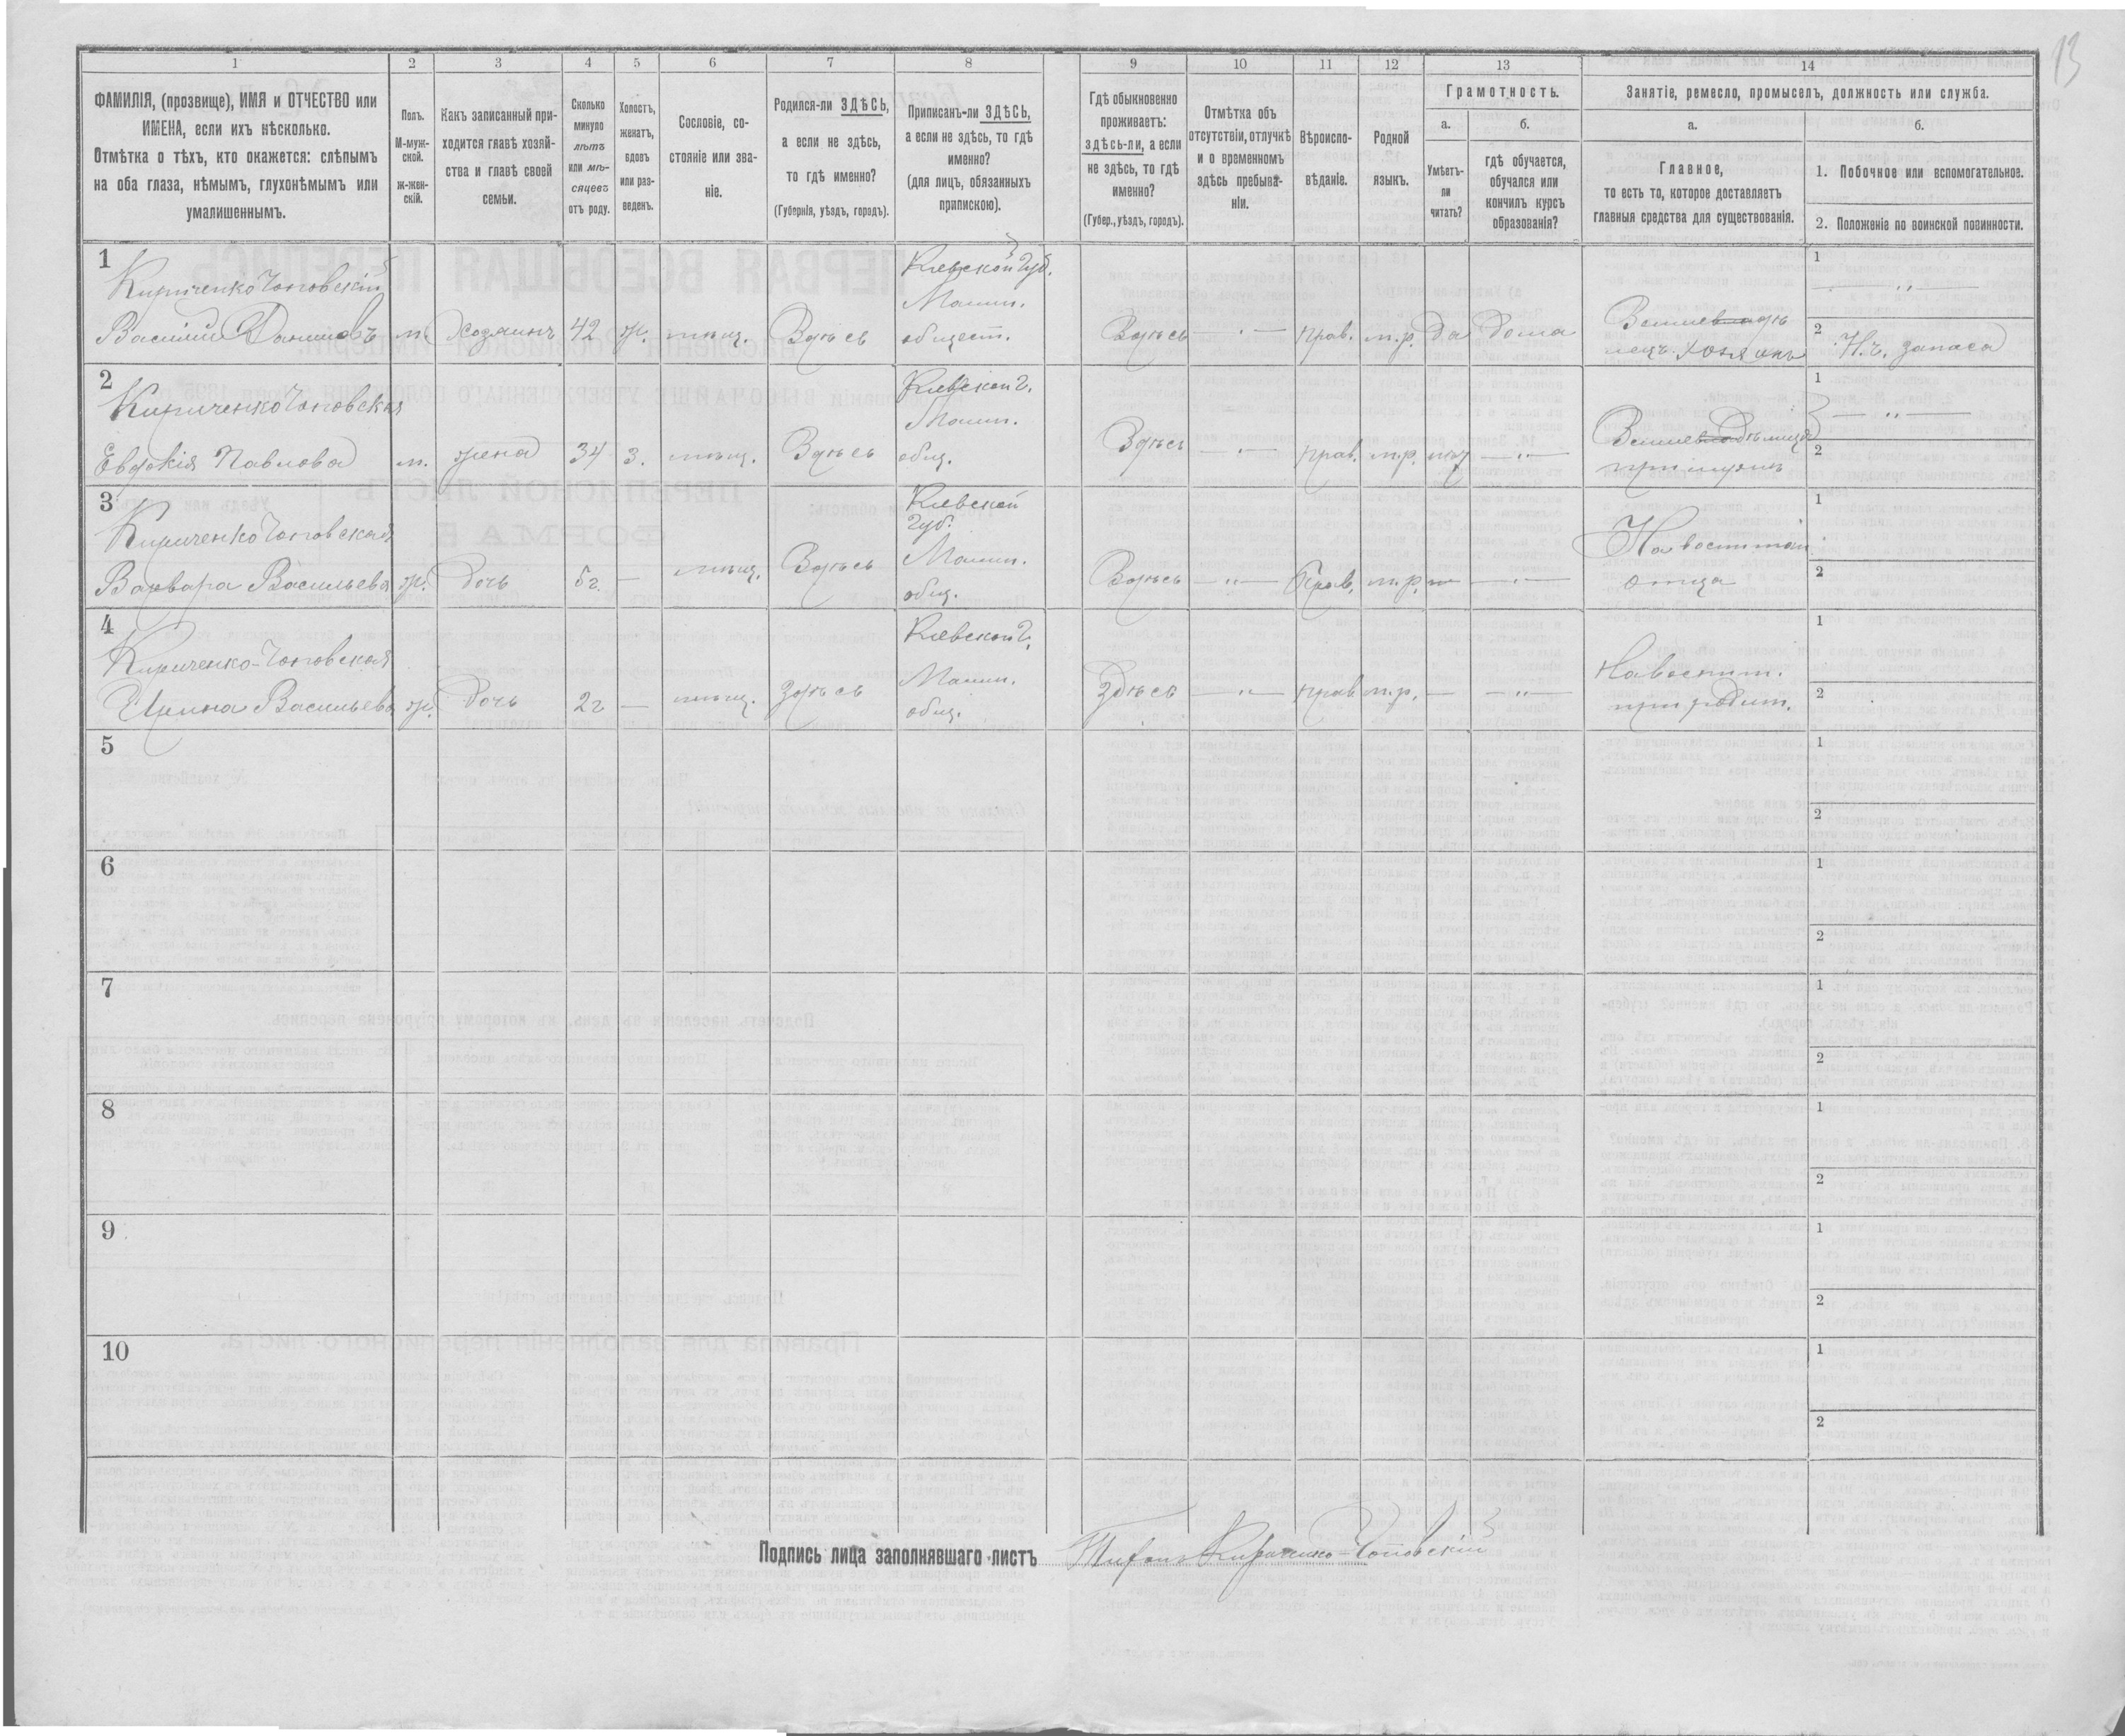 13
1
2
3
4
5
6
7
8
9
10
11
12
13
14
ФАМИЛІЯ, (прозвище), ИМЯ и ОТЧЕСТВО или
ИМЕНА, если ихъ нѣсколько.
Отмѣтка о тѣхъ, кто окажется: слѣпымъ
на оба глаза, нѣмымъ, глухонѣмымъ или
умалишеннымъ.
Полъ.
М-муж-
ской.
Ж-жен-
скій.
Какъ записанный при-
ходится главѣ хозяй-
ства и главѣ своей
семьи.
Сколько
минуло
лѣтъ
или мѣ-
сяцевъ
отъ роду.
Холостъ,
женатъ,
вдовъ
или раз-
веденъ.
Сословіе, со-
стояніе или зва-
ніе.
Родился-ли ЗДѢСЬ,
а если не здѣсь,
то гдѣ именно?
(Губернія, уѣздъ, городъ).
Приписанъ-ли ЗДѢСЬ,
а если не здѣсь, то гдѣ
именно?
(для лицъ, обязанныхъ
припискою).
Гдѣ обыкновенно
проживаетъ:
здѣсь-ли, а если
не здѣсь, то гдѣ
именно?
(Губер., уѣздъ, городъ).
Отмѣтка объ
отсутствіи, отлучкѣ
и о временномъ
здѣсь пребыва-
ніи.
Вѣроиспо-
вѣданіе.
Родной
языкъ.
Грамотность.
а.
Умѣетъ-
ли
читать?
б.
гдѣ обучается,
обучался или
кончилъ курсъ
образованія?
Занятіе, ремесло, промыселъ, должность или служба.
а.
Главное,
то есть то, которое доставляетъ
главныя средства для существованія.
б.
1. Побочное или вспомогательное.
2. Положеніе по воинской повинности.
1
Кириченко Чоповскій
Василій Даниловъ
м.
Хозяинъ
42
ж.
мѣщ.
Здѣсь
Кіевской Губ.
общест.
Здѣсь
— " —
прав.
м.р.
да
дома
1
— " —
2
Н.ч. запаса
2
Кириченко Чоповская
Евдокія Павлова
м.
жена
34
з.
мѣщ.
Здѣсь
Кіевской г.
общ.
Здѣсь
— " —
прав.
м.р.
нѣт
— " —
при мужѣ
1
— " —
2
3
Кириченко Чоповская
Варвара Васильева
ж.
дочь
5 г.
—
мѣщ.
Здѣсь
Кіевской
губ.
общ.
Здѣсь
— " —
Прав.
м.р.
— " —
На воспитан
отца
1
2
4
Кириченко-Чоповская
Ирина Васильева
ж.
дочь
2 г
—
мѣщ.
Здѣсь
Кіевской г.
общ.
Здѣсь
— " —
прав
м.р.
—
— " —
На воспит.
при родит.
1
2
5
1
2
6
1
2
7
1
2
8
1
2
9
1
2
10
1
2
Подпись лица заполнявшаго листъ Кириченко-Чоповскій